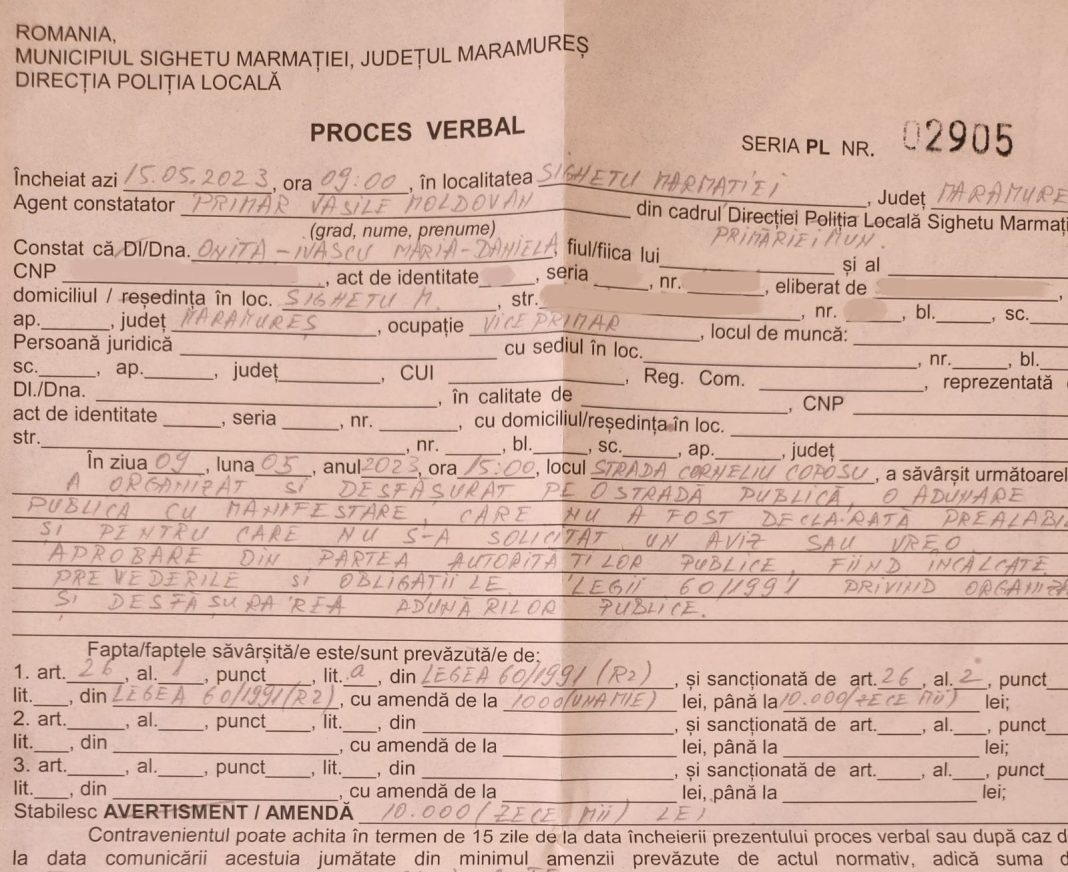 ROMANIA,
MUNICIPIUL SIGHETU MARMAȚIEI, JUDEȚUL MARAMUREȘ
DIRECȚIA POLIȚIA LOCALĂ
PROCES VERBAL
SERIA PL NR. 02905
Încheiat azi 15.05.2023, ora 09:00, în localitatea SIGHETU MARMAȚIEI, Județ MARAMURE
Agent constatator PRIMAR VASILE MOLDOVAN din cadrul Direcției Poliția Locală Sighetu Marmați
(grad, nume, prenume) PRIMĂRIEI MUN.
Constat că Dl/Dna. ONITA-IVASCU MARIA-DANIELA, fiul/fiica lui ______ și al ______
CNP ______, act de identitate ____, seria ____, nr. ____, eliberat de ______,
domiciliul / reședința în loc. SIGHETU M., str. ______, nr. ____, bl.____, sc.
ap.____, județ MARAMUREȘ, ocupație VICEPRIMAR, locul de muncă:
Persoană juridică ______ cu sediul în loc.______, nr.____, bl.
sc.____, ap.____, județ______, CUI ______, Reg. Com. ______, reprezentată
Dl./Dna. ______, în calitate de ______, CNP ______
act de identitate ____, seria ____, nr. ____, cu domiciliul/reședința în loc. ______
str.______, nr. ____, bl.____, sc.____, ap.____, județ ______
În ziua 09, luna 05, anul 2023, ora 15:00, locul STRADA CORNELIU COPOSU, a săvârșit următoarel
A ORGANIZAT SI DESFĂSURAT PE O STRADĂ PUBLICĂ, O ADUNARE
PUBLICĂ CU MANIFESTARE, CARE NU A FOST DECLARATĂ PREALABIL
SI PENTRU CARE NU S-A SOLICITAT UN AVIZ SAU VREO
APROBARE DIN PARTEA AUTORITĂTILOR PUBLICE, FIIND INCĂLCATE
PREVEDERILE SI OBLIGAȚIILE LEGII 60/1991 PRIVIND ORGANIZA
ȘI DESFĂSURAREA ADUNĂRILOR PUBLICE.
Fapta/faptele săvârșită/e este/sunt prevăzută/e de:
1. art. 26, al. 1, punct____, lit. a, din LEGEA 60/1991 (R2), și sancționată de art. 26, al. 2, punct
lit.____, din LEGEA 60/1991 (R2), cu amendă de la 1000 (UNA MIE) lei, până la 10.000 (ZECE MII) lei;
2. art.____, al.____, punct____, lit.____, din ______, și sancționată de art.____, al.____, punct
lit.____, din ______, cu amendă de la ______ lei, până la ______ lei;
3. art.____, al.____, punct____, lit.____, din ______, și sancționată de art.____, al.____, punct
lit.____, din ______, cu amendă de la ______ lei, până la ______ lei;
Stabilesc AVERTISMENT / AMENDĂ 10.000 (ZECE MII) LEI
Contravenientul poate achita în termen de 15 zile de la data încheierii prezentului proces verbal sau după caz d
la data comunicării acestuia jumătate din minimul amenzii prevăzute de actul normativ, adică suma d